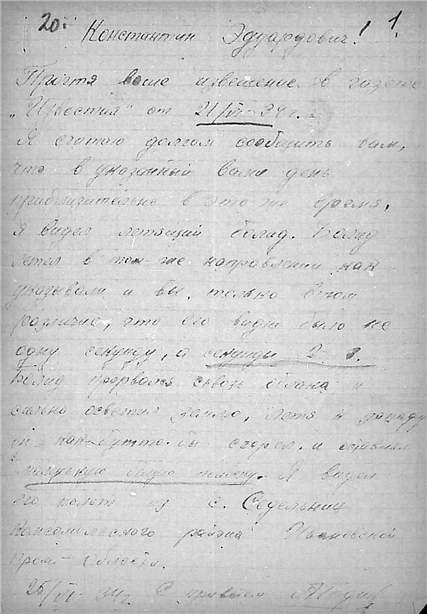 20. 1.
Константин Эдуардович!
Прочтя ваше извещение в газете
„Известия" от 21/VI-34 г.
Я считаю долгом сообщить вам,
что в указанный вами день
приблизительно в это же время,
я видел летящий болид. Болид
летел в том-же направлении как
указывали и вы, только в том
различие, что его видно было не
одну секунду, а секунды 2-3.
Болид прорвался сквозь облака и
сильно осветил землю, летя к западу
он как-бутто-бы сгорел и оставил
белую полосу. Я видел
его полет из с. Седельниц
района Ивановской
пром-области.
25/VI-34г. С приветом